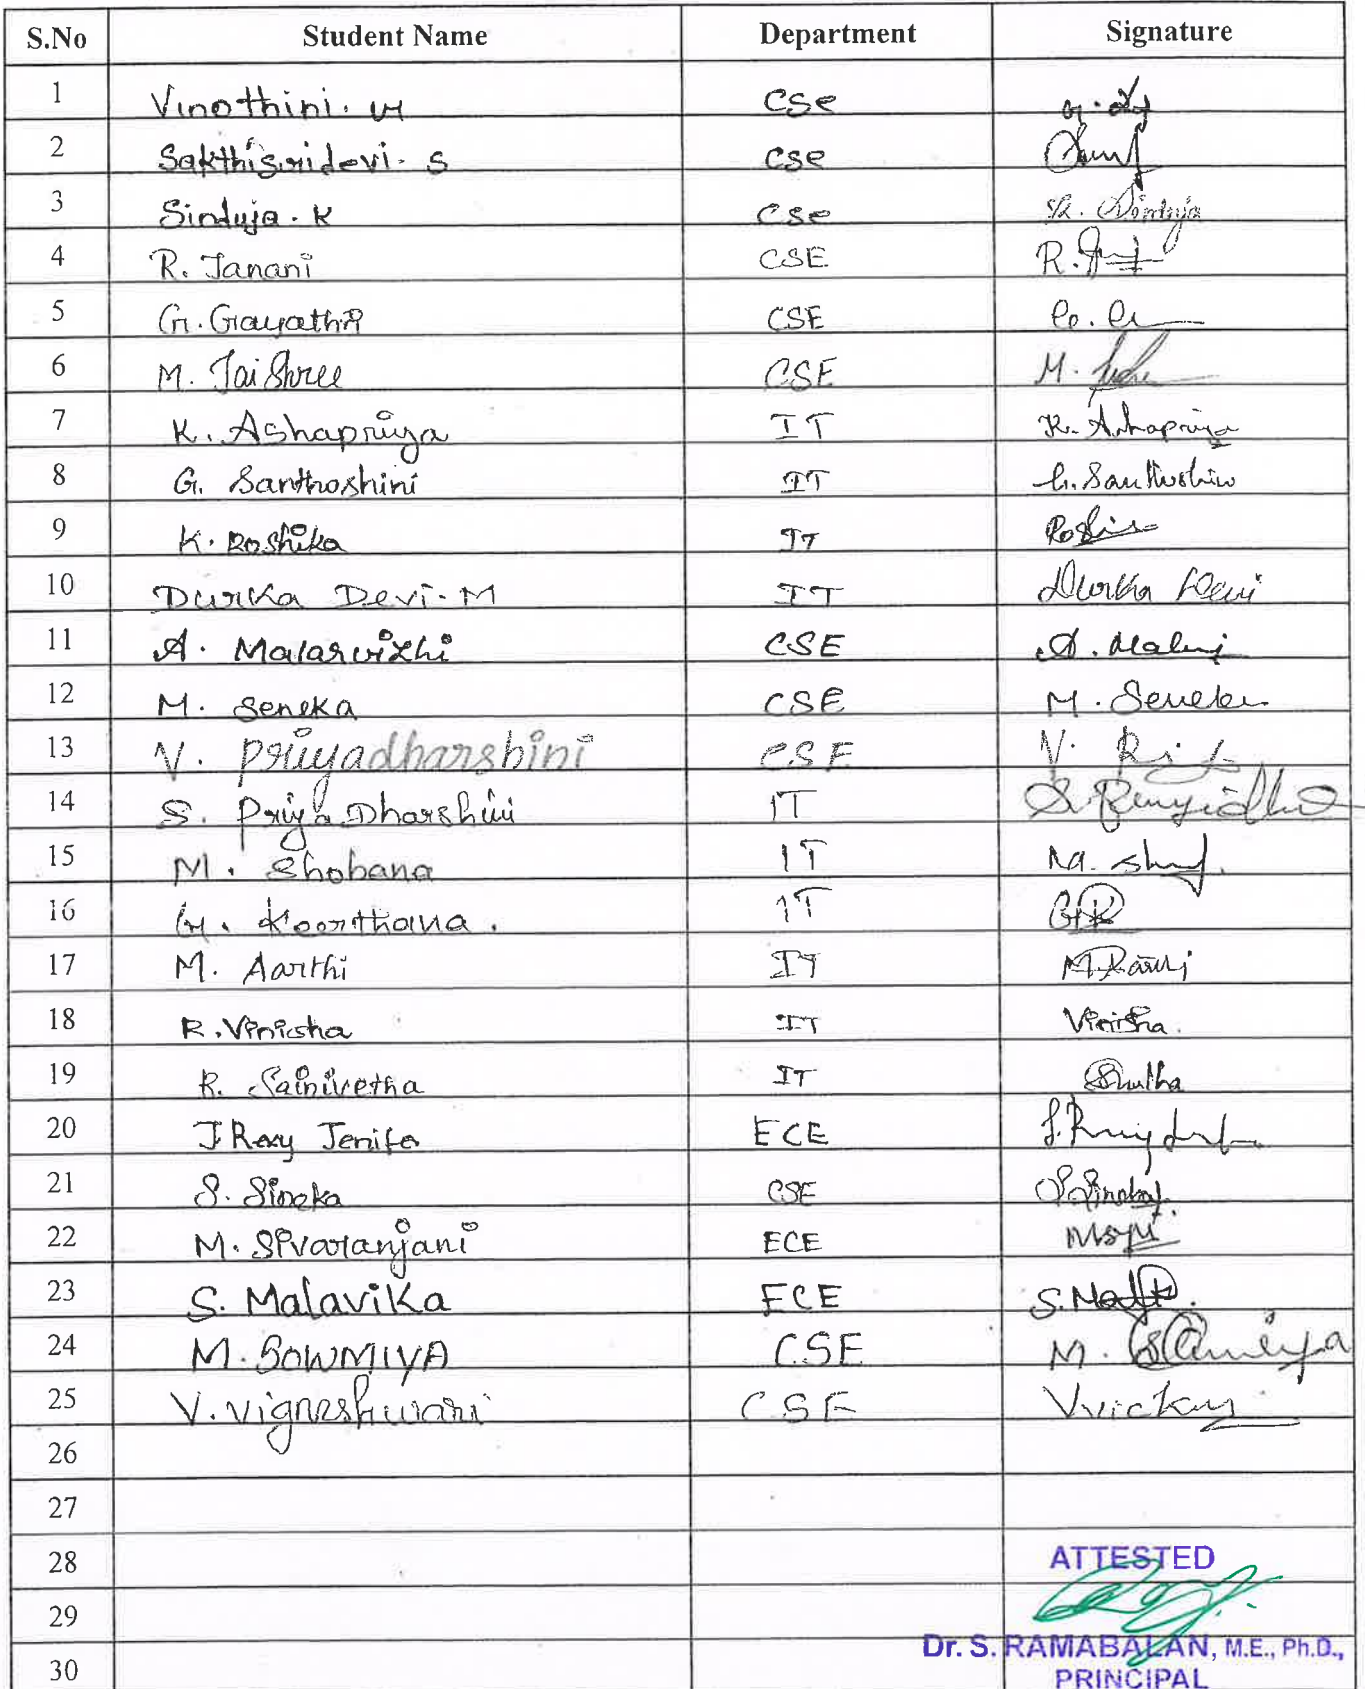 S.No Student Name Department Signature
1 Vinothini. M CSE
2 Sakthisridevi. S CSE
3 Sinduja. K CSE K. Sinduja
4 R. Janani CSE R.
5 G. Gayathri CSE
6 M. Jai Shree CSE M.
7 K. Ashapriya IT K. Ashapriya
8 G. Santhoshini IT G. Santhoshini
9 K. Roshika IT
10 Durka Devi. M IT Durka Devi
11 A. Malarvizhi CSE A.
12 M. Seneka CSE M. Seneka
13 V. Priyadharshini CSE V.
14 S. Priya Dharshini IT
15 M. Shobana IT M.
16 G. Keerthana. IT GK
17 M. Aarthi IT
18 R. Vinisha IT Vinisha.
19 R. Sainivetha IT
20 J. Rexy Jenifa ECE
21 S. Sineka CSE
22 M. Sivaranjani ECE
23 S. Malavika ECE S.
24 M. SOWMIYA CSE M. Sowmiya
25 V. Vigneshwari CSE V.vicky
26
27
28 ATTESTED
29
Dr. S. RAMABALAN, M.E., Ph.D.,
30 PRINCIPAL